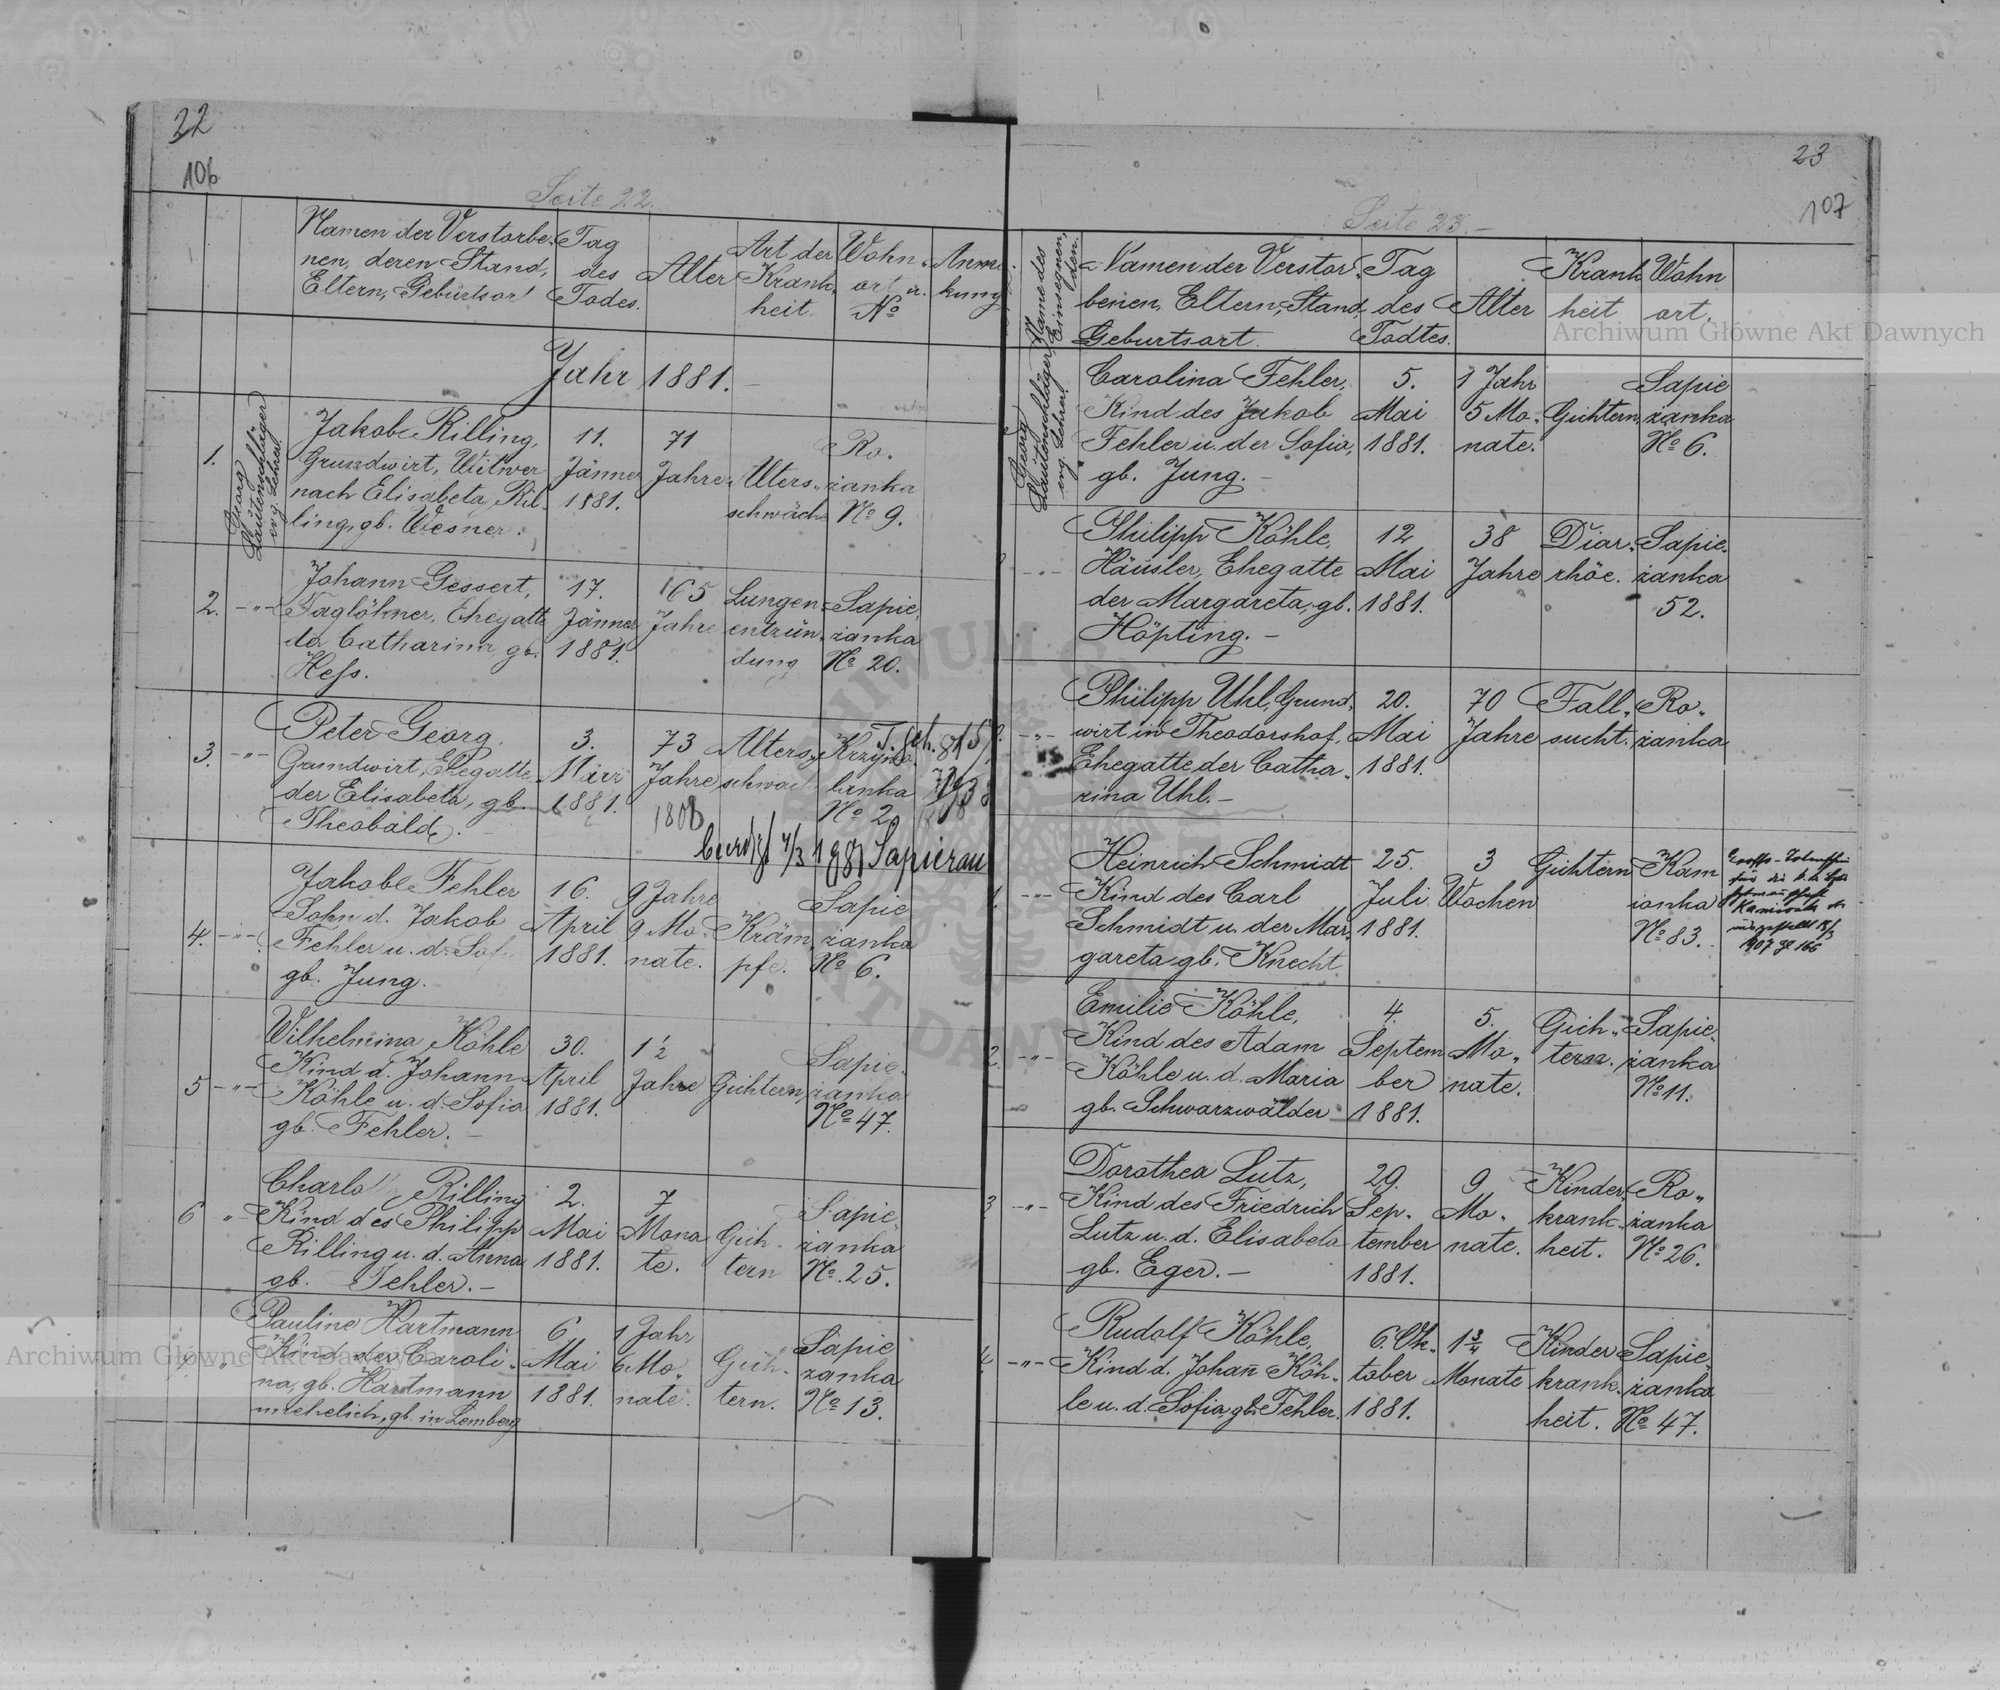 22
106
Seite 22.
Namen der Verstorbe-
nen, deren Stand,
Eltern, Geburtsort
Tag
des
Todes.
Alter
Art der
Krank
heit
Wohn-
ort u.
No
Anmer-
kung
Jahr 1881.
1.
Georg
Lautenschläger
evg. Lehrer
Jakob Rilling,
Grundwirt, Witwer
nach Elisabeta Ril-
ling, gb. Wesner.
11.
Jänner
1881.
71
Jahre
Alters-
schwäche
Ro-
żanka
No 9.
2.
-"-
Johann Gessert,
Taglöhner, Ehegatte
der Catharina gb.
Hess.
17.
Jänner
1881.
65
Jahre
Lungen-
entzün-
dung
Sapie-
żanka
No 20.
3.
-"-
Peter Georg,
Grundwirt, Ehegatte
der Elisabeta, gb.
Theobald.
3.
März
1881.
73
Jahre
1808
Alters-
schwäch
lanka
No 2
4/3 1881 Sapieżan
4.
-"-
Jakob Fehler
Sohn d. Jakob
Fehler u. d. Sof
gb. Jung.
16.
April
1881.
9 Jahre
9 Mo-
nate.
Kräm-
pfe.
Sapie
żanka
No 6.
5
-"-
Wilhelmina Köhle
Kind d. Johann
Köhle u. d. Sofia
gb. Fehler. -
30.
April
1881.
1 1/2
Jahre
Gichtern
Sapie-
żanka
No 47.
6
"
Charlo Rilling
Kind des Philipp
Rilling u. d. Anna
gb. Fehler. -
2.
Mai
1881.
7
Mona
te.
Gich-
tern
Sapie-
żanka
No. 25.
"
Pauline Hartmann
Kind der Caroli-
na, gb. Hartmann
unehelich, gb. in Lemberg
6.
Mai
1881.
1 Jahr
6 Mo-
nate.
Gich-
tern.
Sapie
żanka
No 13.
23
107
Seite 23. -
Name des
Einsegnen-
den.
Namen der Verstor-
benen, Eltern, Stand,
Geburtsort.
Tag
des
Todtes.
Alter
Krank
heit
Wohn
ort.
Georg
Lautenschläger
evg. Lehrer
Carolina Fehler,
Kind des Jakob
Fehler u. der Sofia,
gb. Jung. -
5.
Mai
1881.
1 Jahr
5 Mo-
nate.
Gichtern
Sapie
żanka
No 6.
-"-
Philipp Köhle,
Häusler, Ehegatte
der Margareta, gb.
Höpting. -
12
Mai
1881.
38
Jahre
Diar-
rhöe.
Sapie-
żanka
52.
-"-
Philipp Uhl, Grund-
wirt in Theodorshof,
Ehegatte der Catha-
rina Uhl. -
20.
Mai
1881.
70
Jahre
Fall-
sucht.
Ro-
żanka
1.
-"-
Heinrich Schmidt
Kind des Carl
Schmidt u. der Mar-
gareta gb. Knecht
25.
Juli
1881.
3
Wochen
Gichtern
Kam
ionka
No 83.
für die
1907
166
2.
-"-
Emilie Köhle,
Kind des Adam
Köhle u. d. Maria
gb. Schwarzwälder
4.
Septem
ber
1881.
5.
Mo-
nate.
Gich-
tern.
Sapie-
żanka
No 11.
3
-"-
Dorothea Lutz,
Kind des Friedrich
Lutz u. d. Elisabeta
gb. Eger. -
29.
Sep-
tember
1881.
9
Mo-
nate.
Kinder-
krank-
heit.
Ro-
żanka
No 26.
4
-"-
Rudolf Köhle,
Kind d. Johañ Köh-
le u. d. Sofia, gb. Fehler.
6. Ok-
tober
1881.
1 3/4
Monate
Kinder
krank-
heit.
Sapie-
żanka
No 47.
Archiwum Główne Akt Dawnych
Archiwum Główne Akt Dawnych
ARCHIWUM
AKT DAWNYCH